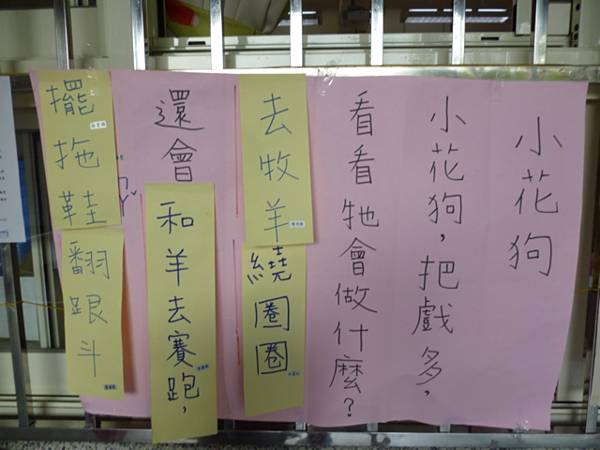 小花狗
小花狗，把戲多，
看看牠會做什麼？
去牧羊
繞圈圈
還會
和羊去賽跑，
擺拖鞋
翻跟斗